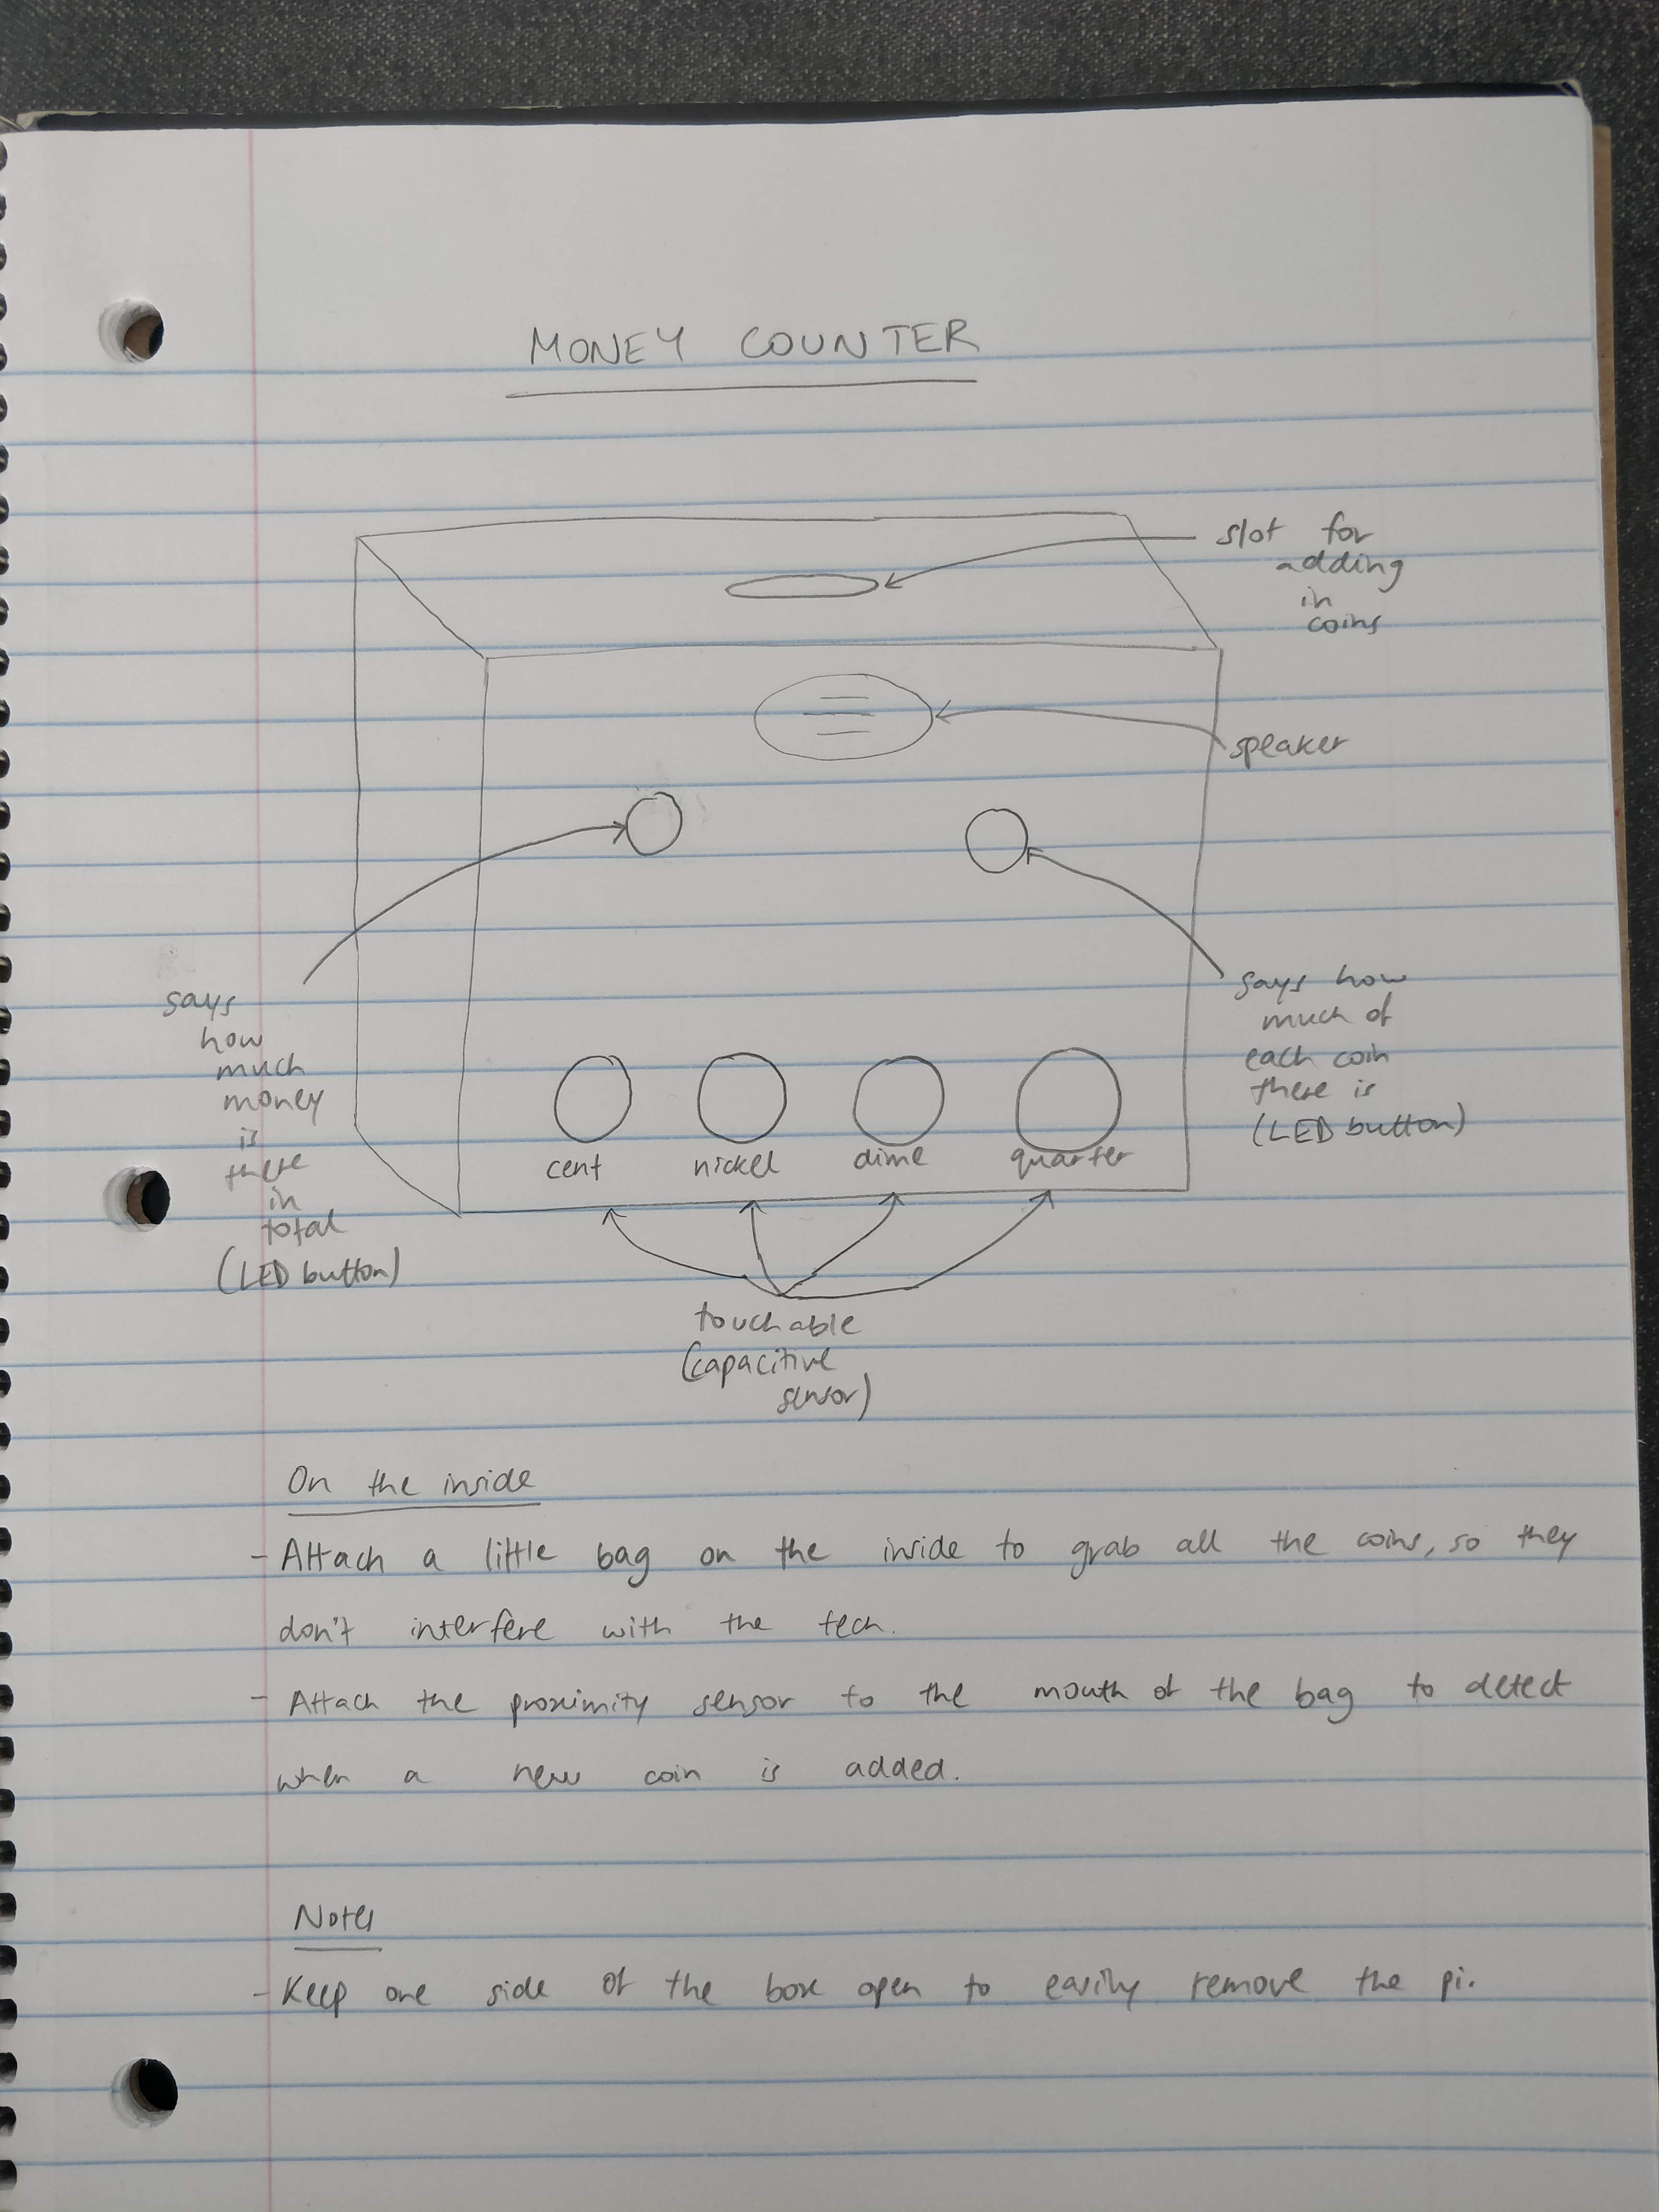 MONEY COUNTER
slot for
adding
in
coins
speaker
says
how
much
money
is
there
in
total
(LED button)
says how
much of
each coin
there is
(LED button)
cent nickel dime quarter
touchable
(capacitive
sensor)
On the inside
- Attach a little bag on the inside to grab all the coins, so they
don't interfere with the tech.
- Attach the proximity sensor to the mouth of the bag to detect
when a new coin is added.
Notes
- Keep one side of the box open to easily remove the pi.